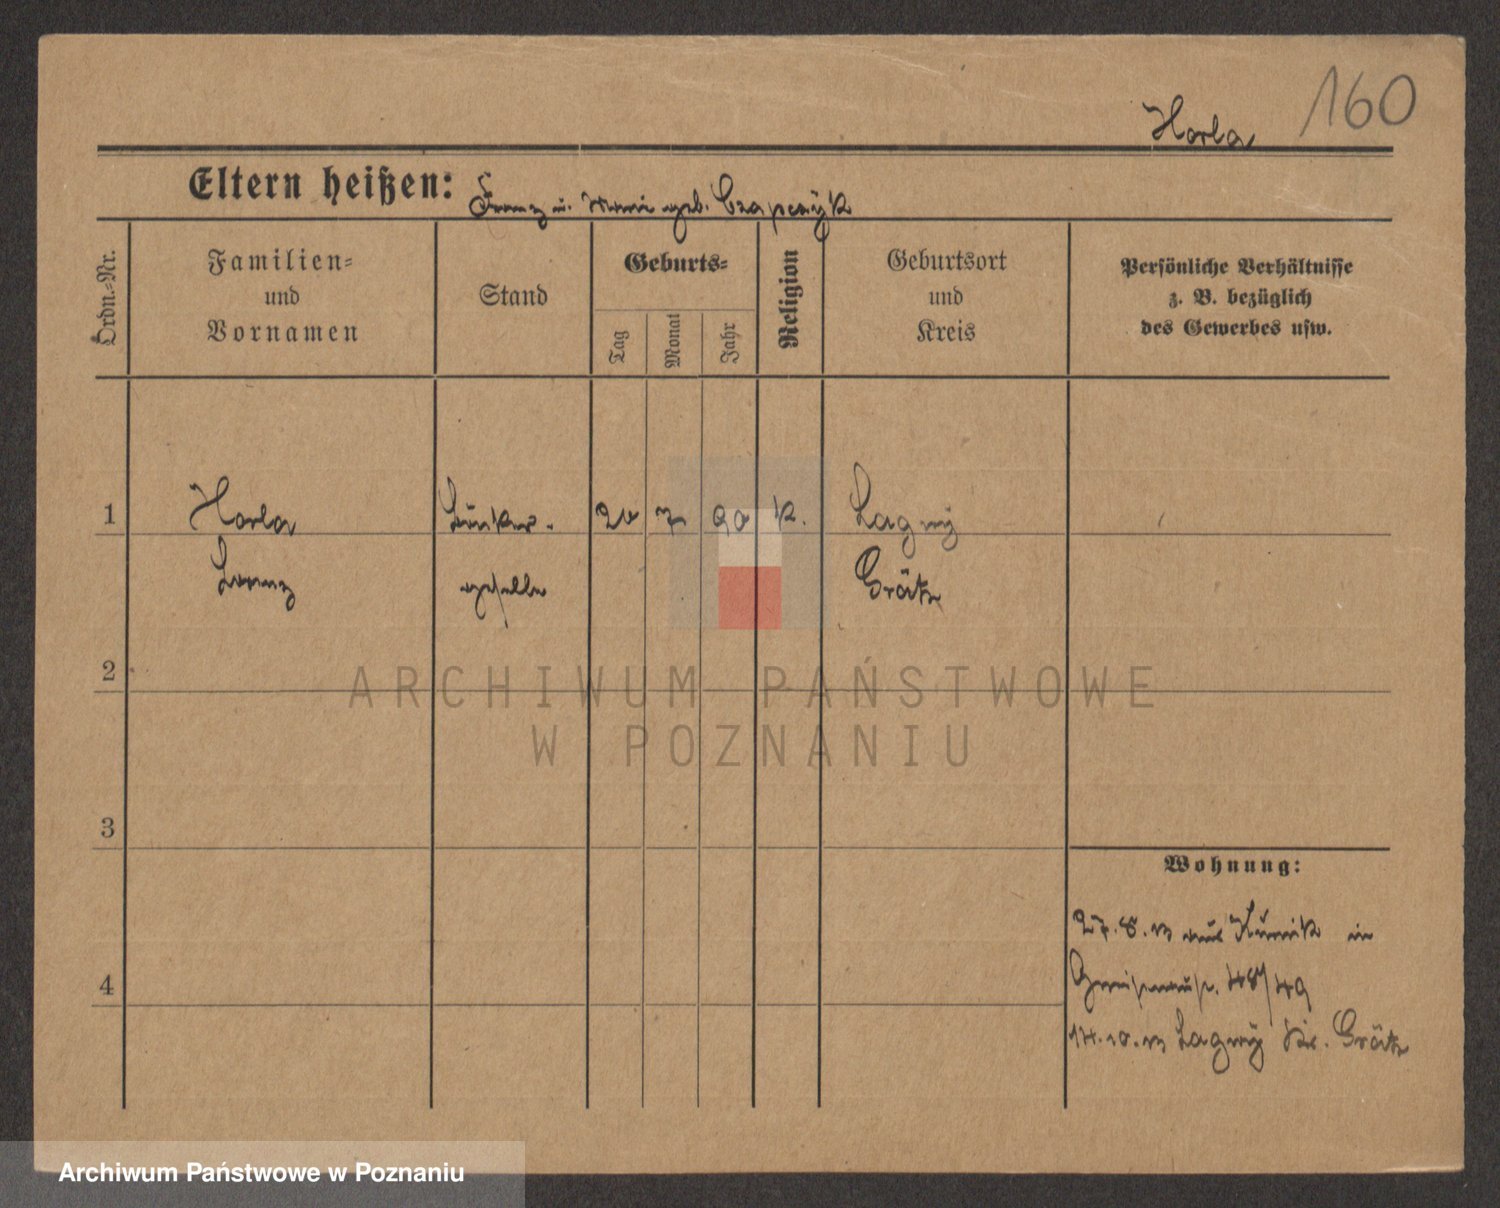 160
Horla
Eltern heißen: Franz u. Marie geb. Czapczyk
Ordn.-Nr.
Familien-
und
Vornamen
Stand
Geburts-
Tag
Monat
Jahr
Religion
Geburtsort
und
Kreis
Persönliche Verhältnisse
z. B. bezüglich
des Gewerbes usw.
1 Horla Bäcker- 20 7 90 k. Lagwy
Lorenz geselle Grätz
2
3
4
Wohnung:
27.8.13 aus Kurnik in
Gneisenaustr. 48/49
14.10.13 Lagwy Kr. Grätz
ARCHIWUM PAŃSTWOWE
W POZNANIU
Archiwum Państwowe w Poznaniu